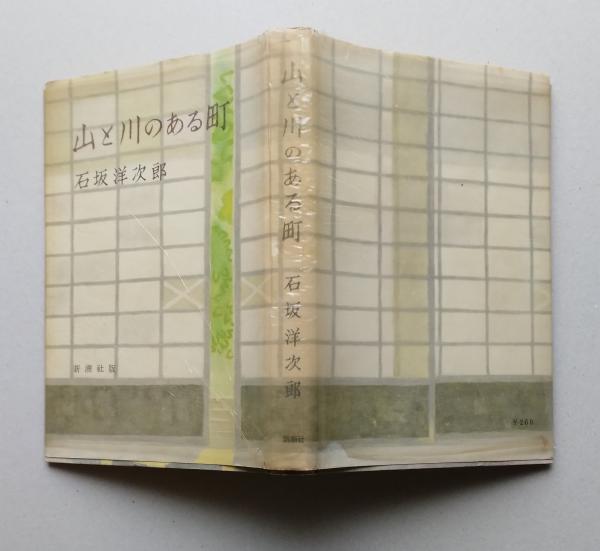 山と川のある町
石坂洋次郎
新潮社版
山と川のある町
石坂洋次郎
新潮社
¥260